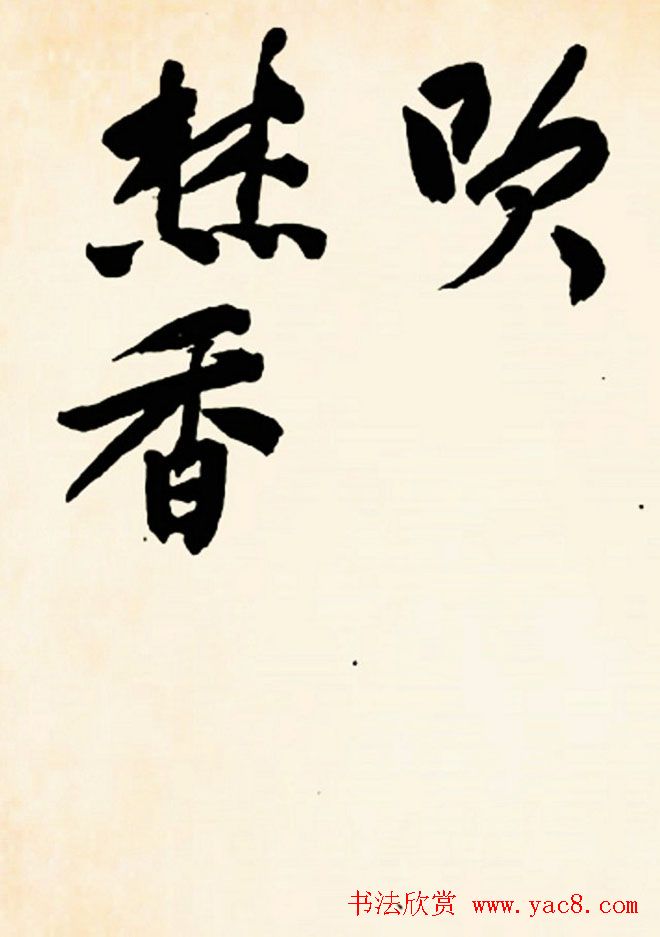 吹
焚香
书法欣赏 www.yac8.com